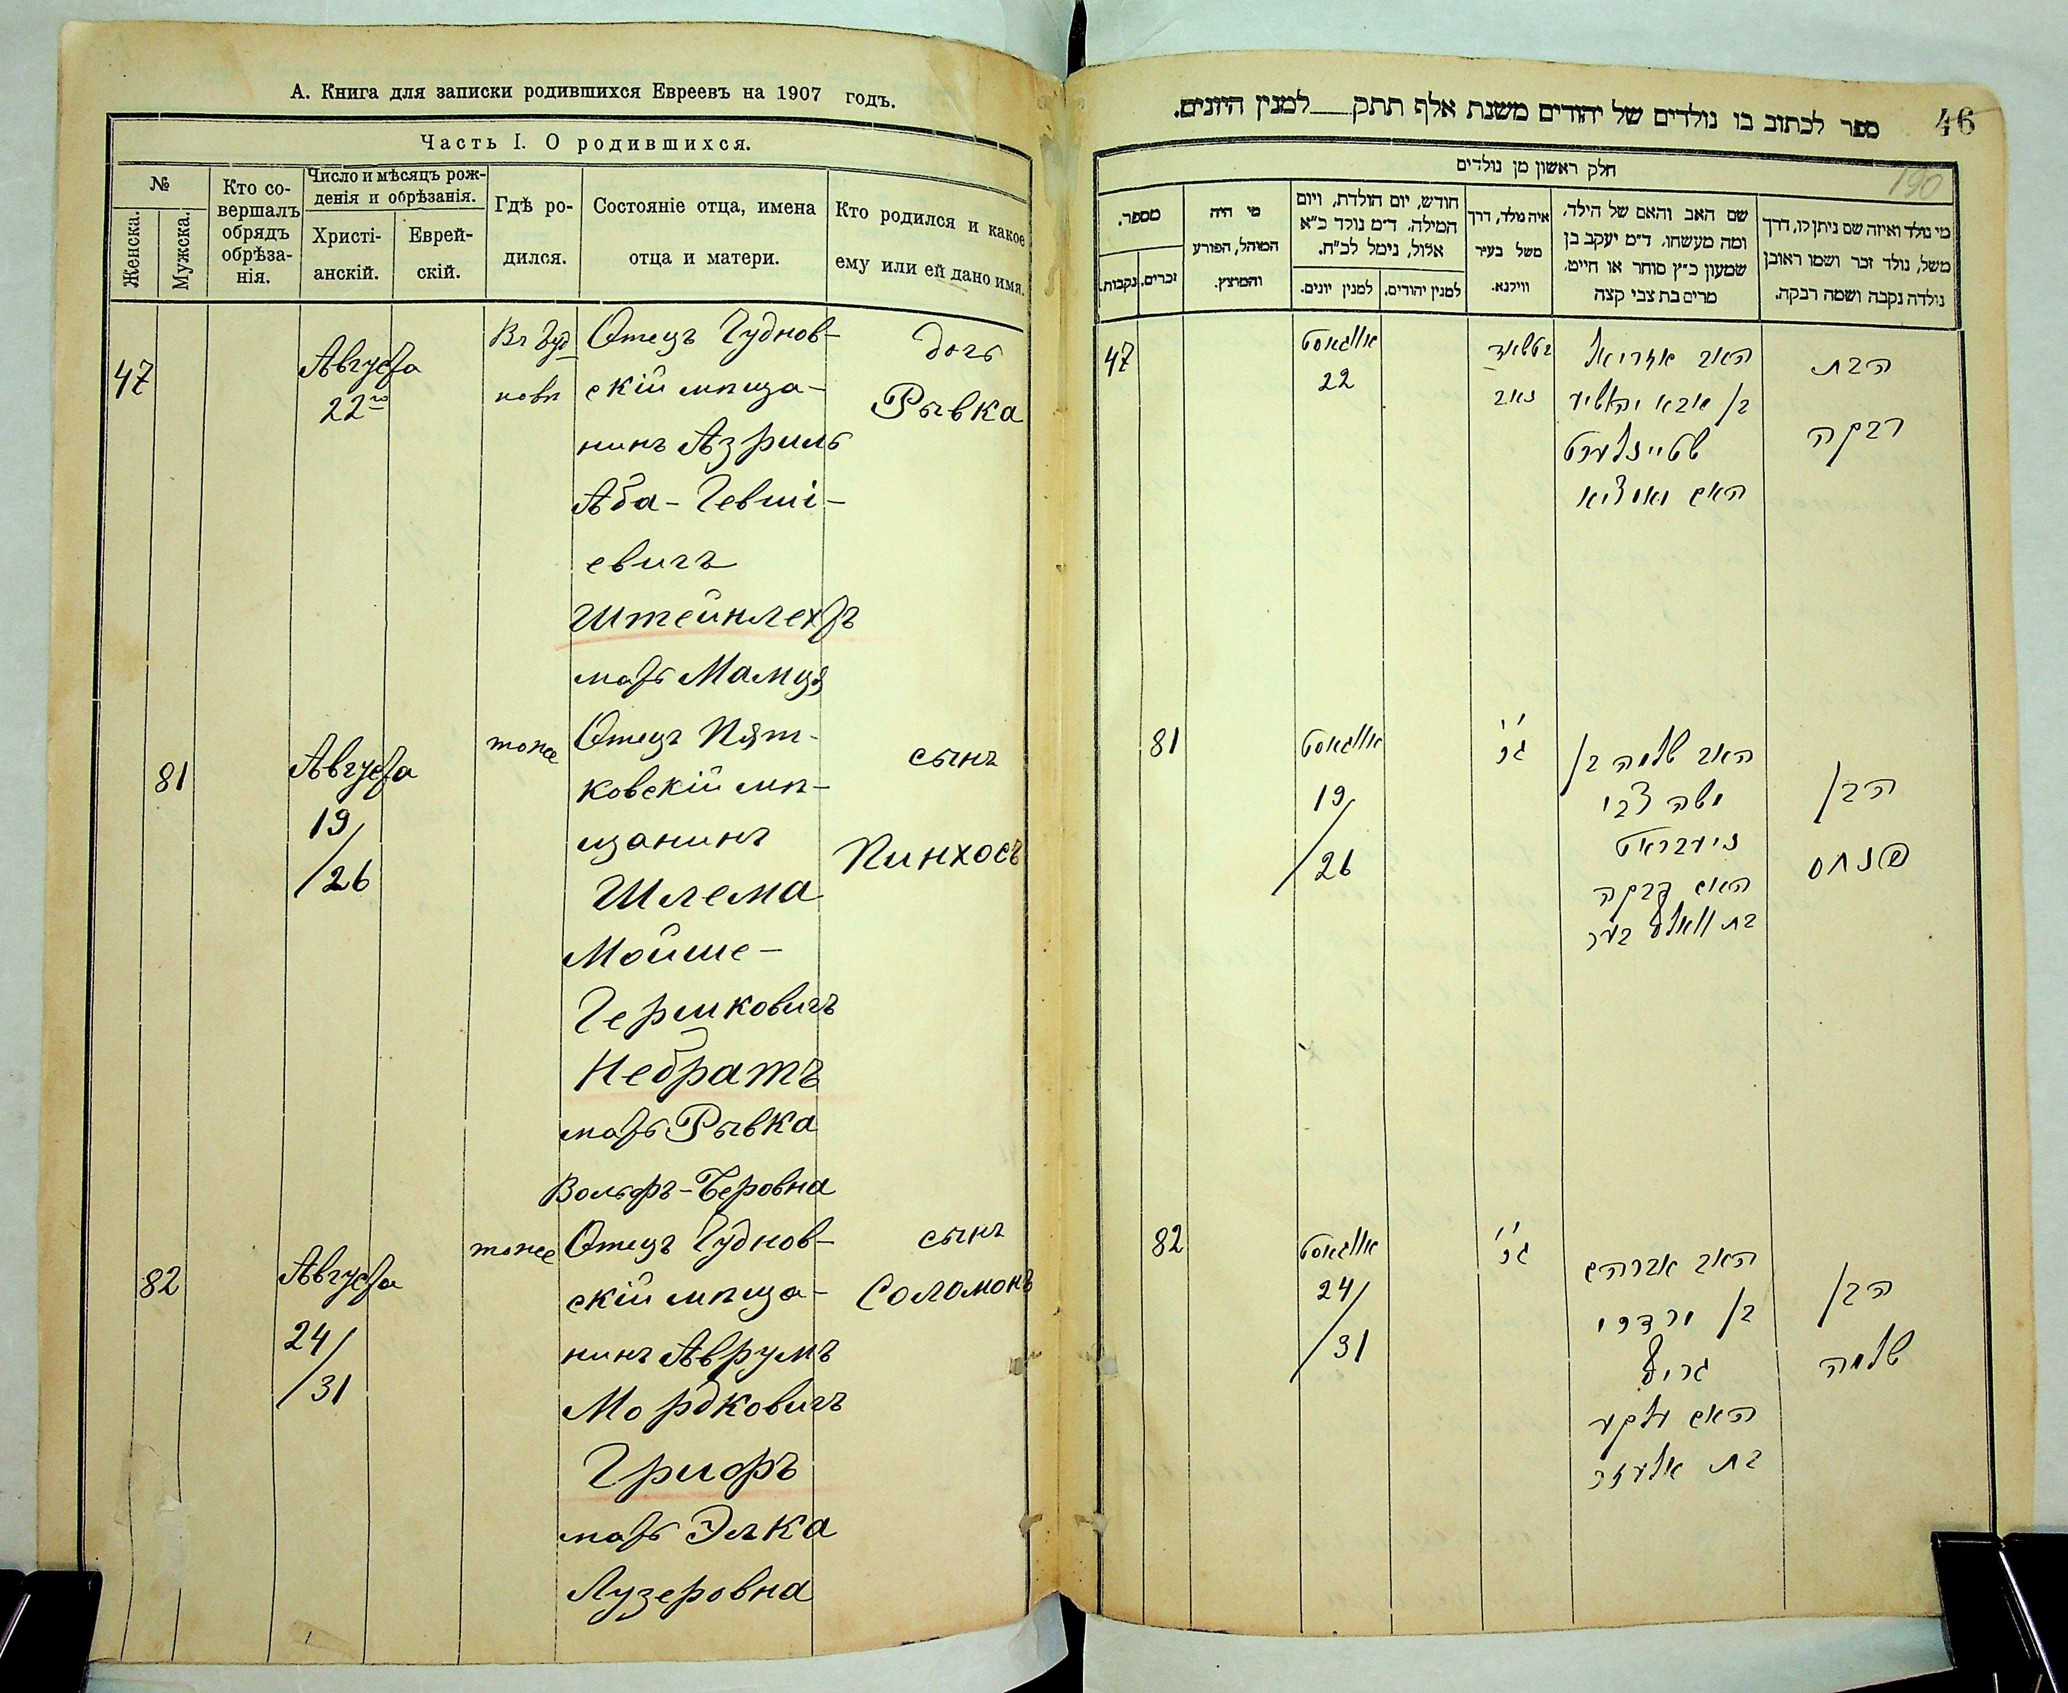 А. Книга для записки родившихся Евреевъ на 1907 годъ.
Часть I. О родившихся.
№
Женска.
Мужска.
Кто со-
вершалъ
обрядъ
обрѣза-
нія.
Число и мѣсяцъ рож-
денія и обрѣзанія.
Христі-
анскій.
Еврей-
скій.
Гдѣ ро-
дился.
Состояніе отца, имена
отца и матери.
Кто родился и какое
ему или ей дано имя.
47
Августа
22го
Въ Чуд
новѣ
Отецъ Чуднов-
скій мѣща-
нинъ Азриль
Аба-Гевши-
евичъ
Штейнлехтъ
мать Мамця
дочь
Рывка
81
Августа
19/
/26
тоже
Отецъ Пят-
ковскій мѣ-
щанинъ
Шлема
Мойше-
Гершковичъ
Небратъ
мать Рывка
Вольфъ-Беровна
сынъ
Пинхосъ
82
Августа
24/
/31
тоже
Отецъ Чуднов-
скій мѣща-
нинъ Аврумъ
Мордковичъ
Грифъ
мать Элка
Лузеровна
сынъ
Соломонъ
46
190
ספר לכתוב בו נולדים של יהודים משנת אלף תתק___למנין היונים.
חלק ראשון מן נולדים
מספר.
נקבות.
זכרים.
מי היה
המוהל, הפורע
והמוצץ.
חודש, יום הולדת, ויום
המילה. ד״מ נולד כ״א
אלול, נימל לכ״ח.
למנין יונים.
למנין יהודים.
איה נולד, דרך
משל בעיר
ווילנא.
שם האב והאם של הילד,
ומה מעשהו. ד״מ יעקב בן
שמעון כ״ץ סוחר או חייט,
מרים בת צבי קצה
מי נולד ואיזה שם ניתן לו, דרך
משל, נולד זכר ושמו ראובן
נולדה נקבה ושמה רבקה.
47
אווגאסט
22
האב אזריאל
בן אבא
האם
הבת
רבקה
81
אווגאסט
19/
/26
האב שלמה בן
צבי
ניעבראט
האם רבקה
בת וואלף בער
הבן
פנחס
82
אווגאסט
24/
/31
האב אברהם
בן מרדכי
גריף
האם עלקע
בת אלעזר
הבן
שלמה